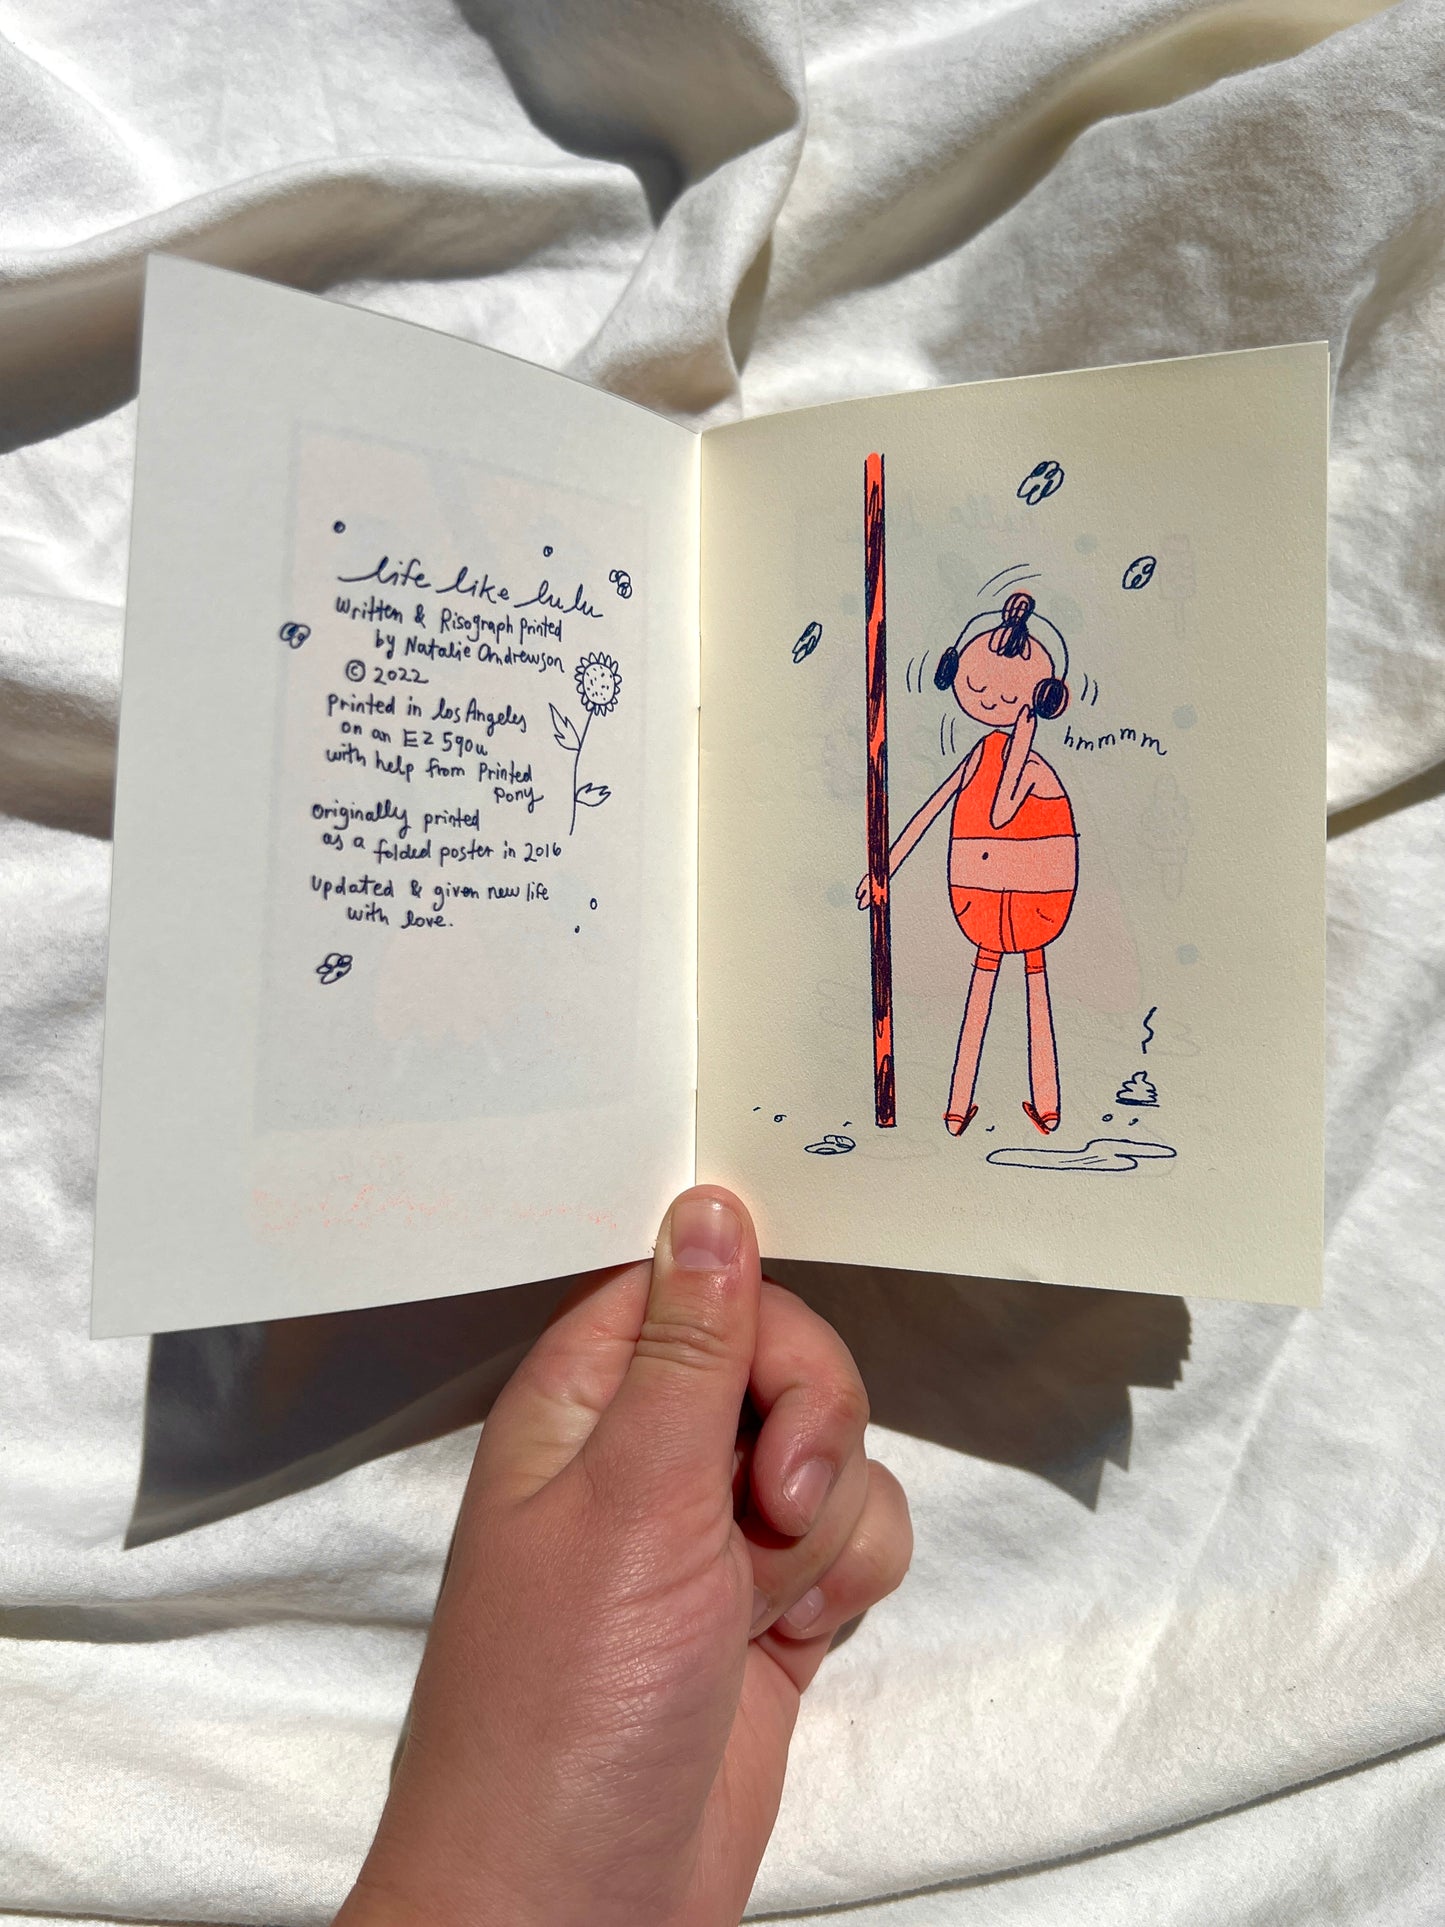 life like lulu
Written & Risograph Printed
by Natalie Andrewson
© 2022
Printed in Los Angeles
on an EZ 590u
with help from Printed
Pony
Originally printed
as a folded poster in 2016
Updated & given new life
with love.
hmmmmm